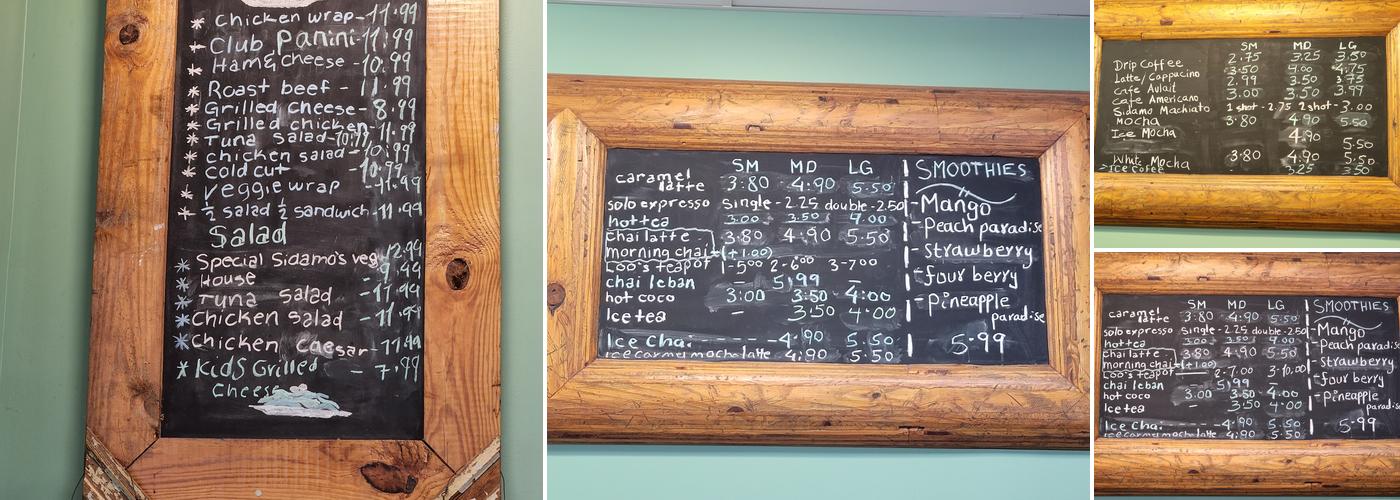 * Chicken wrap-11.99
* Club Panini-11.99
* Ham & cheese -10.99
* Roast beef - 11.99
* Grilled cheese- 8.99
* Grilled chicken -11.99
* Tuna salad-10.99
* chicken salad-10.99
* cold cut -10.99
* veggie wrap -11.99
* ½ salad ½ sandwich-11.99
Salad
* Special Sidamo's veg 12.99
* House - 9.99
* Tuna salad -11.99
* Chicken salad - 11.99
* Chicken caesar-11.99
* Kids Grilled - 7.99
Cheese
SM MD LG
caramel latte 3.80 4.90 5.50
solo expresso single-2.25 double-2.50
hot tea 3.00 3.50 4.00
chai latte 3.80 4.90 5.50
morning chai (+1.00)
Loo's teapot 1-5⁰⁰ 2-6⁰⁰ 3-7⁰⁰
chai leban - 5.99 -
hot coco 3.00 3.50 4.00
Ice tea - 3.50 4.00
Ice Chai ---- -4.90 5.50
ice carmel mocha latte 4.90 5.50
SMOOTHIES
-Mango
-Peach paradise
-Strawberry
-four berry
-Pineapple
paradise
5.99
SM MD LG
Drip Coffee 2.75 3.25 3.50
Latte/Cappucino 3.50 4.00 4.75
Cafe Aulait 2.99 3.50 3.75
Cafe Americano 3.00 3.50 3.99
Sidamo Machiato 1 shot-2.75 2 shot-3.00
Mocha 3.80 4.90 5.50
Ice Mocha 4.90 5.50
White Mocha 3.80 4.90 5.50
Ice cofee - 3.25 3.50
SM MD LG
caramel latte 3.80 4.90 5.50
solo expresso single-2.25 double-2.50
hot tea 3.00 3.50 4.00
chai latte 3.80 4.90 5.50
morning chai (+1.00)
Loo's teapot 2-7.00 3-10.00
chai leban - 5.99 -
hot coco 3.00 3.50 4.00
Ice tea - 3.50 4.00
Ice Chai ---- -4.90 5.50
ice carmel mocha latte 4.90 5.50
SMOOTHIES
-Mango
-Peach paradise
-Strawberry
-four berry
-Pineapple
5.99